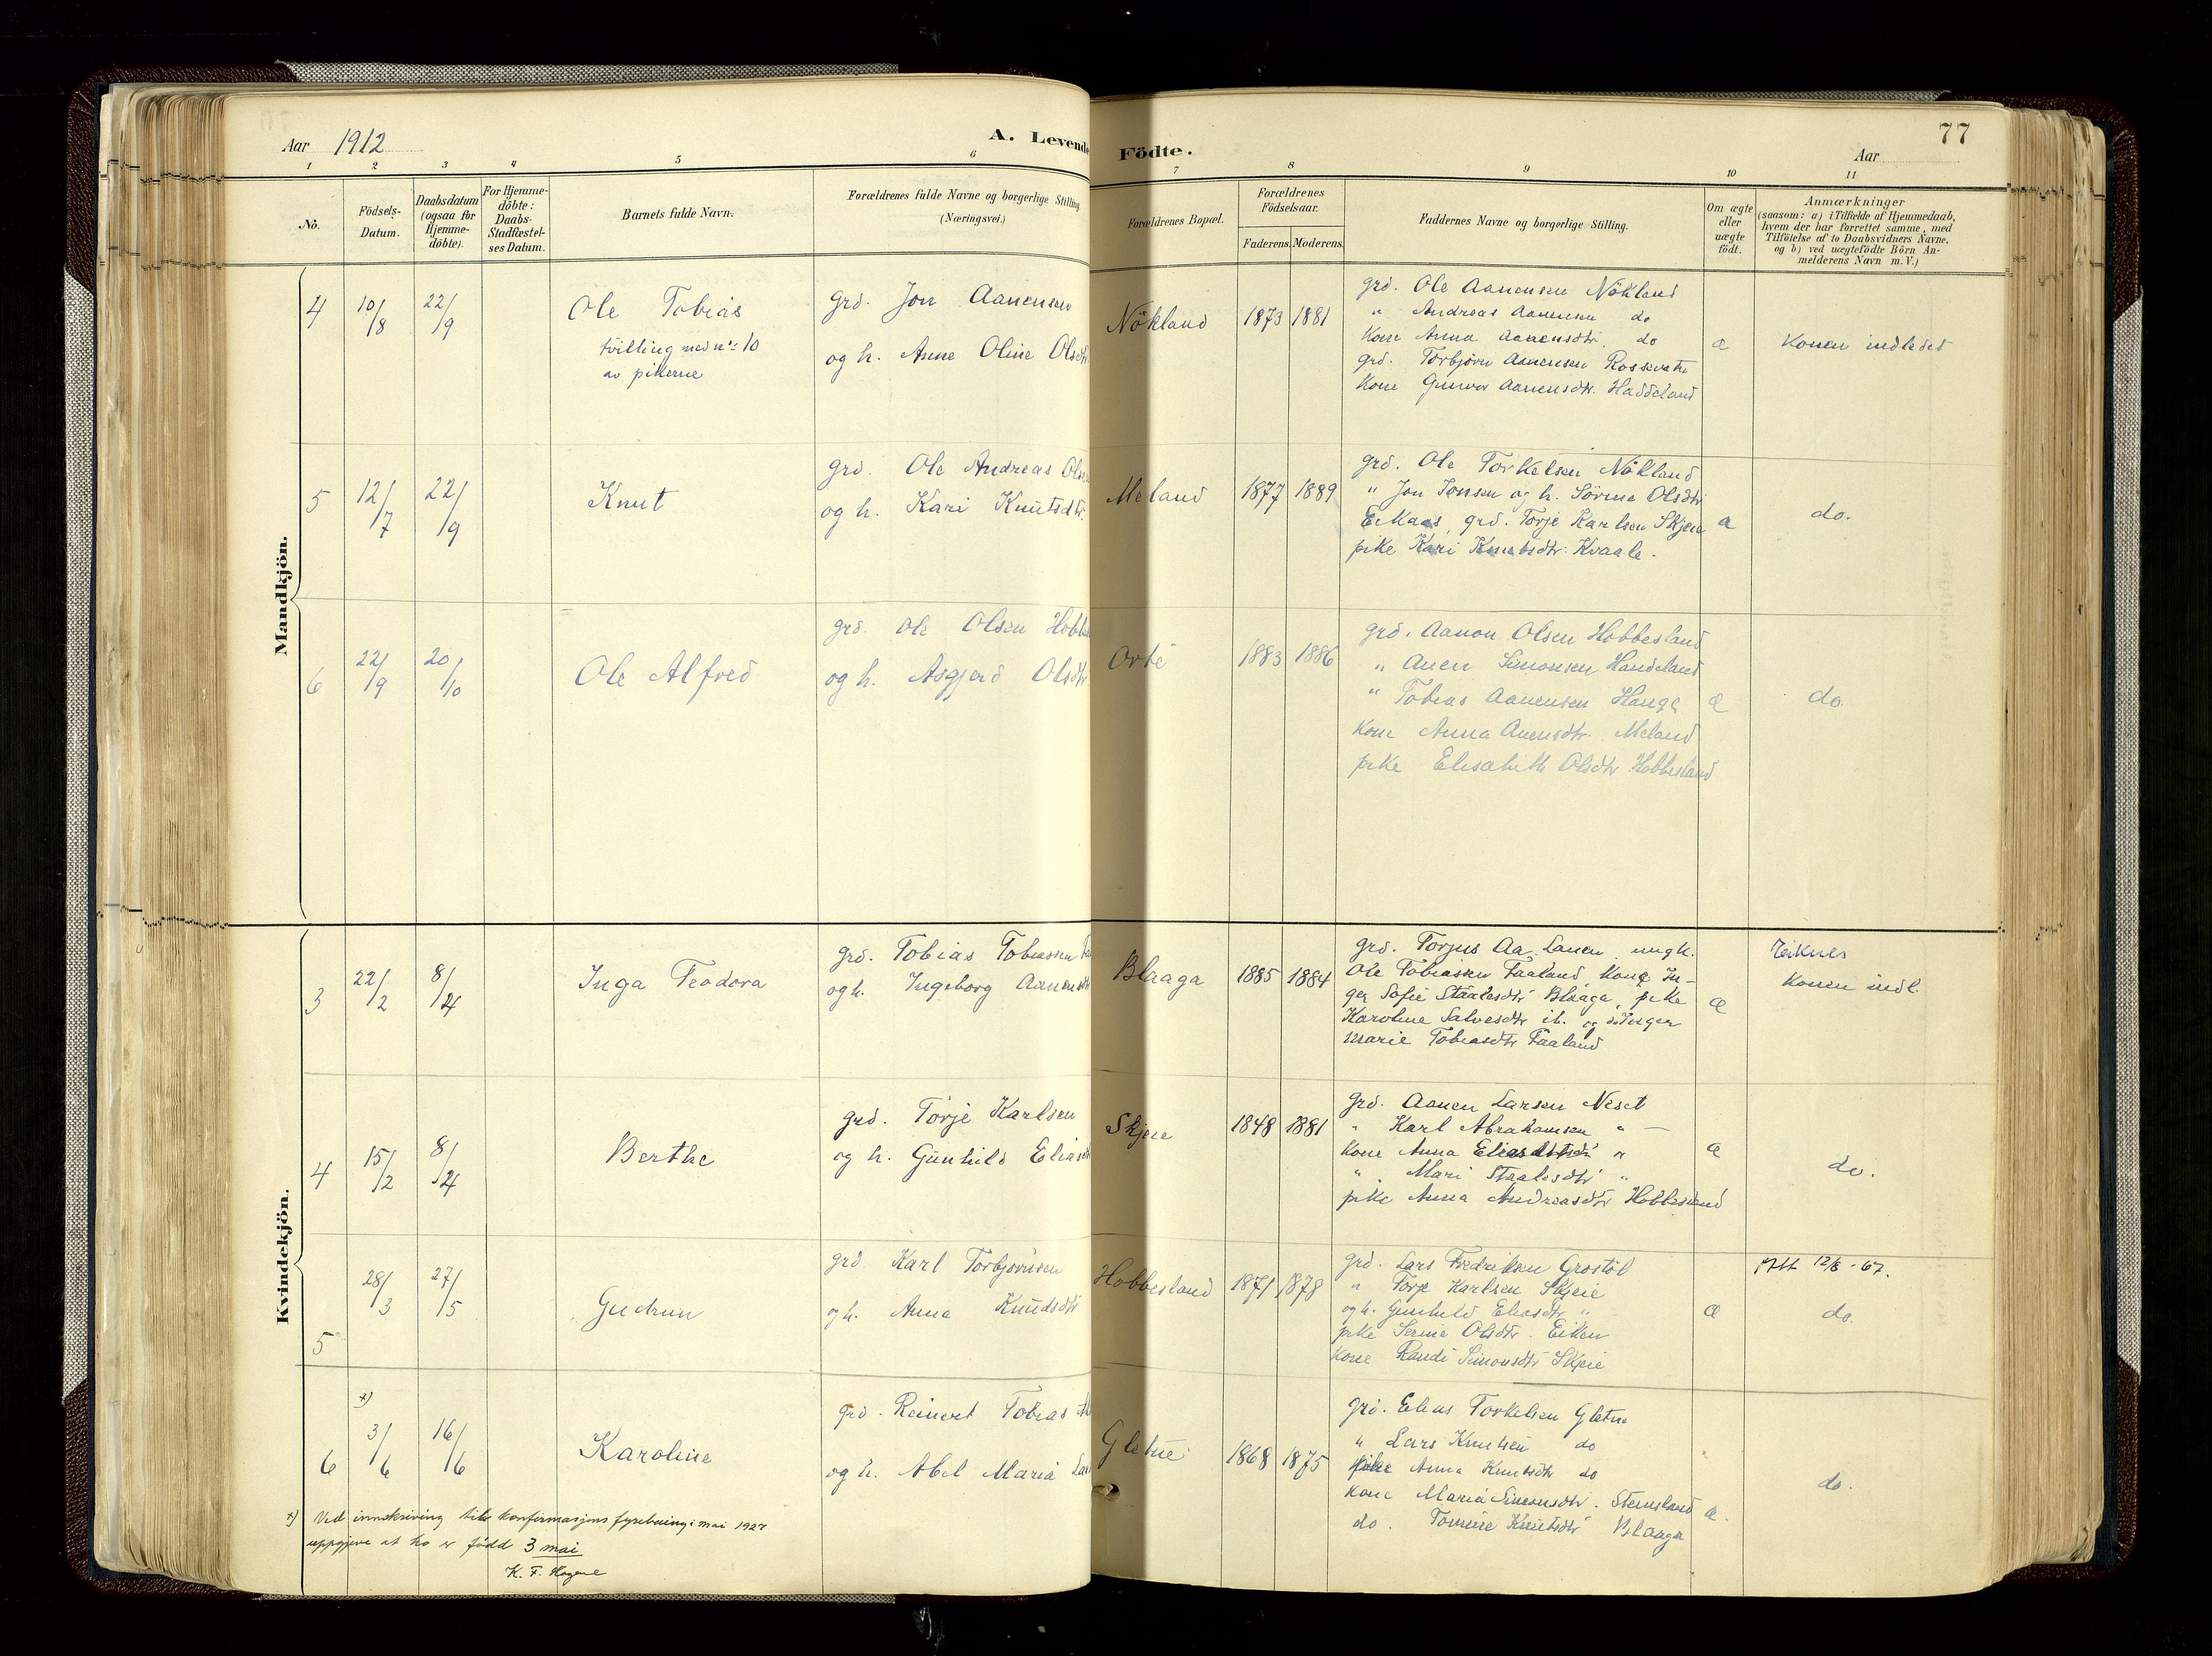 77
Aar 1912
A. Levende Födte.
Aar
1 2 3 4 5 6 7 8 9 10 11
No.
Födsels-Datum.
Daabsdatum (ogsaa for Hjemme-döbte).
For Hjemme-döbte: Daabs-Stadfæstel-ses Datum.
Barnets fulde Navn.
Forældrenes fulde Navne og borgerlige Stilling
(Næringsvei.)
Forældrenes Bopæl.
Forældrenes Födselsaar.
Faderens. Moderens.
Faddernes Navne og borgerlige Stilling.
Om ægte eller uægte födt.
Anmærkninger
(saasom: a) i Tilfælde af Hjemmedaab,
hvem der har forrettet samme, med
Tilföielse af to Daabsvidners Navne,
og b) ved uægtefödte Börn An-
melderens Navn m. V.)
Mandkjön.
4 10/8 22/9
Ole Tobias
tvilling med no: 10
av pikerne
grd. Jon Aanensen
og h. Anne Oline Olsdtr
Nökland 1873 1881
grd. Ole Aanensen Nökland
" Andreas Aanensen do
Kone Anna Aanensdtr. do
grd. Torbjörn Aanensen
Kone Gunvor Aanensdtr. Haddeland
æ
Konen indledet
5 12/7 22/9
Knut
grd. Ole Andreas Olsen
og h. Kari Knutsdtr.
Meland 1877 1889
grd. Ole Torkelsen Nökland
" Jon Jonsen og h. Sörine Olsdtr
Eikaas, grd. Torje Karlsen Skjeie
pike Kari Knutsdtr. Kvaale.
æ
do.
6 22/9 20/10
Ole Alfred
grd. Ole Olsen
og h. Asgjerd Olsdtr
1883 1886
grd. Aanon Olsen Hobbesland
" Anen Simonsen Handeland
" Tobias Aanensen Hauge
Kone Anna Anensdtr. Meland
pike Elisabeth Olsdtr Hobbesland
æ
do.
Kvindekjön.
3 22/2 8/4
Inga Teodora
grd. Tobias Tobiassen
og h. Ingeborg
Blaaga 1885 1884
grd. Torjus Aa. Lauen, ungk.
Ole Tobiassen Faaland, Kone In-
ger Sofie Staalesdtr Blaaga, pike
Karoline Salvesdtr ib. og do Inger
Marie Tobiasdtr Faaland
æ
Konen indl.
4 15/2 8/4
Berthe
grd. Torje Karlsen
og h. Gunhild
Skjeie 1848 1881
grd. Aanen Larsen Neset
" Karl Abrahamsen " —
Kone Anna "
" Mari Staalesdtr "
pike Anna Andreasdtr Hobbesland
æ
do.
5 28/3 27/5
Gudrun
grd. Karl Torbjörnsen
og h. Anna Knudsdtr
Hobbesland 1871 1878
grd. Lars Fredriksen Grostöl
" Torje Karlsen Skjeie
og h. Gunhild Eliasdtr "
pike Serine Olsdtr. Eiken
Kone Randi Simonsdtr Skjeie
æ
Att 12/8 - 67.
do.
x)
6 3/6 16/6
Karoline
grd. Reinert Tobias
og h. Abel Maria
Gletne 1868 1875
grd. Elias Torkelsen Gletne
" Lars Knutsen do
Anna Knutsdtr do
Kone Maria Simonsdtr. Stensland
do. Tomine Knutsdtr Blaaga
æ.
do.
x) Ved innskriving til konfirmasjons fyrebuing i mai 1927
uppgjeve at ho er född 3 mai
K. F. Hagene